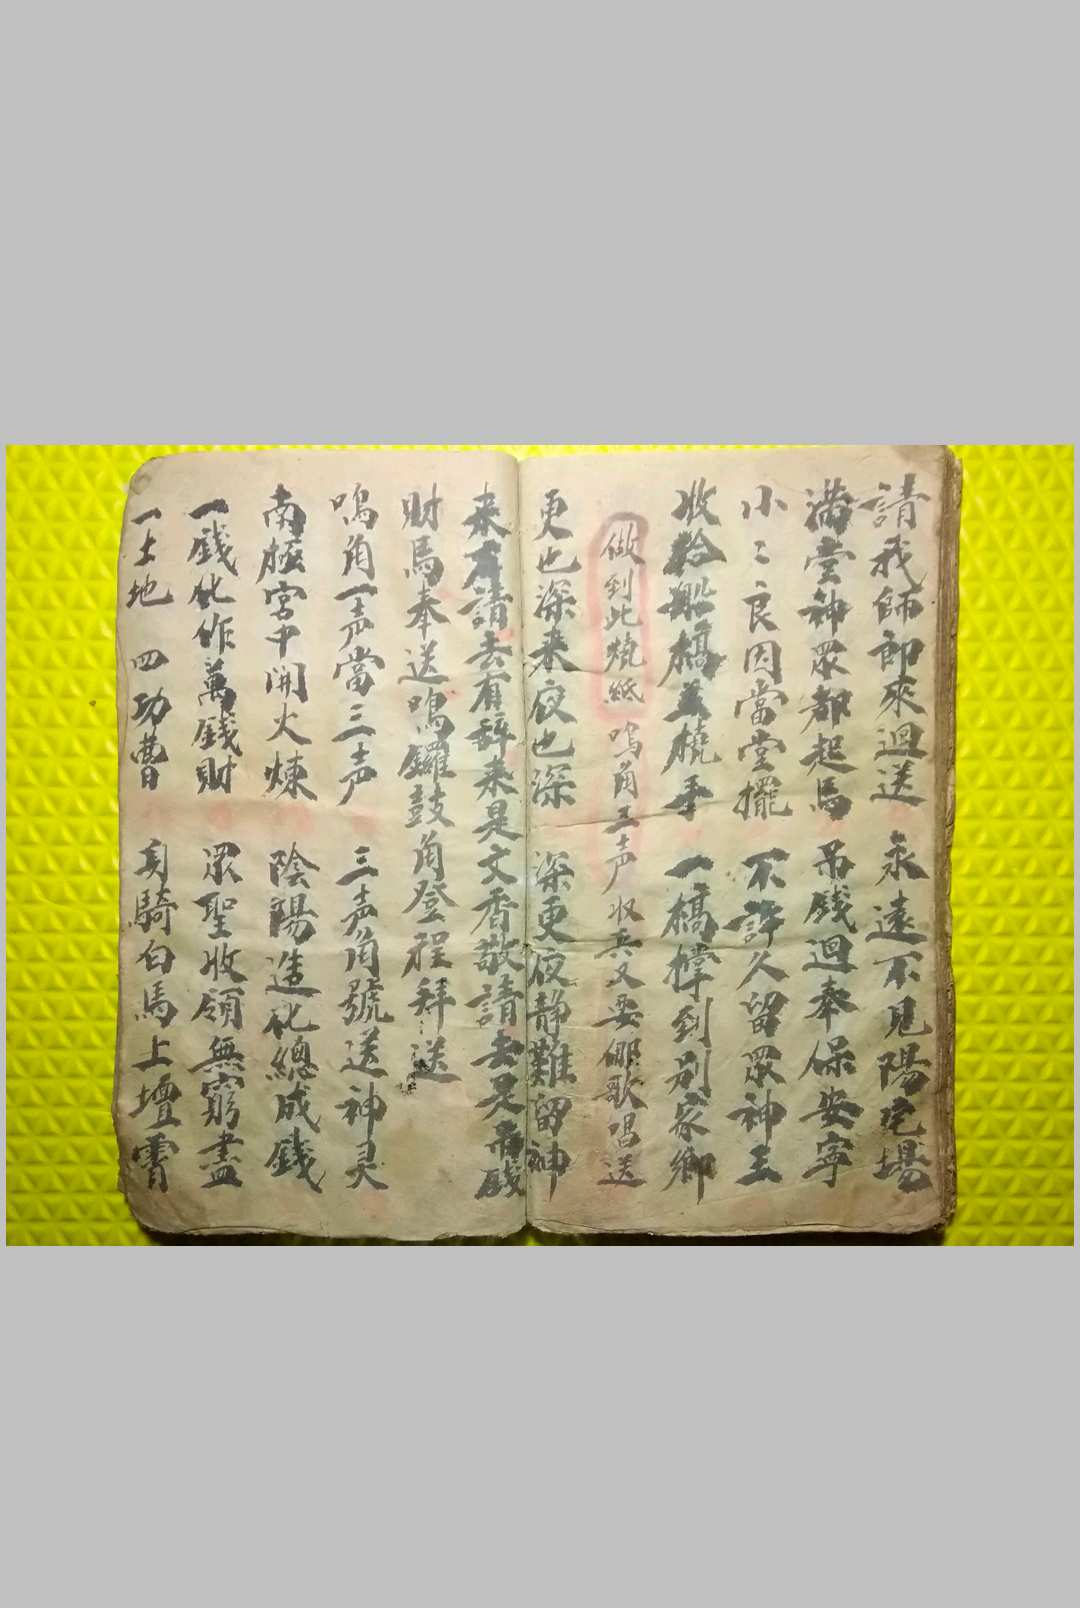 請我師郎來迴送 永遠不見陽宅場
滿堂神眾都起馬 吊錢迴奉保安寧
小〻良因當堂擺 不許久留眾神王
收拾船槁並橈手 一槁撑到别家鄉
做到此燒紙 鳴角三声收兵又耍儺歌唱送
更也深来夜也深 深更夜静難留神
来有請去有辞来是文香敬請去是吊錢
財馬奉送鳴鑼鼓角登程拜送
鳴角一声當三声 三声角號送神灵
南極宮中開火煉 陰陽造化總成錢
一錢化作萬錢財 眾聖收領無窮盡
一土地 四功曹 騎白馬上壇霄